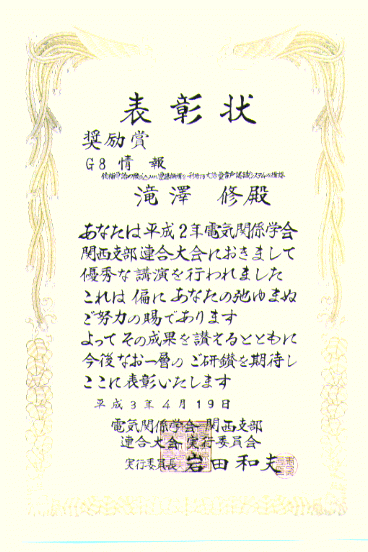 表彰状
奨励賞
G8 情報
滝澤 修殿
あなたは平成2年電気関係学会
関西支部連合大会におきまして
優秀な講演を行われました
これは偏にあなたの弛ゆまぬ
ご努力の賜であります
よってその成果を讃えるとともに
今後なお一層のご研鑚を期待し
ここに表彰いたします
平成3年4月19日
電気関係学会関西支部
連合大会実行委員会
実行委員長 岩田和夫